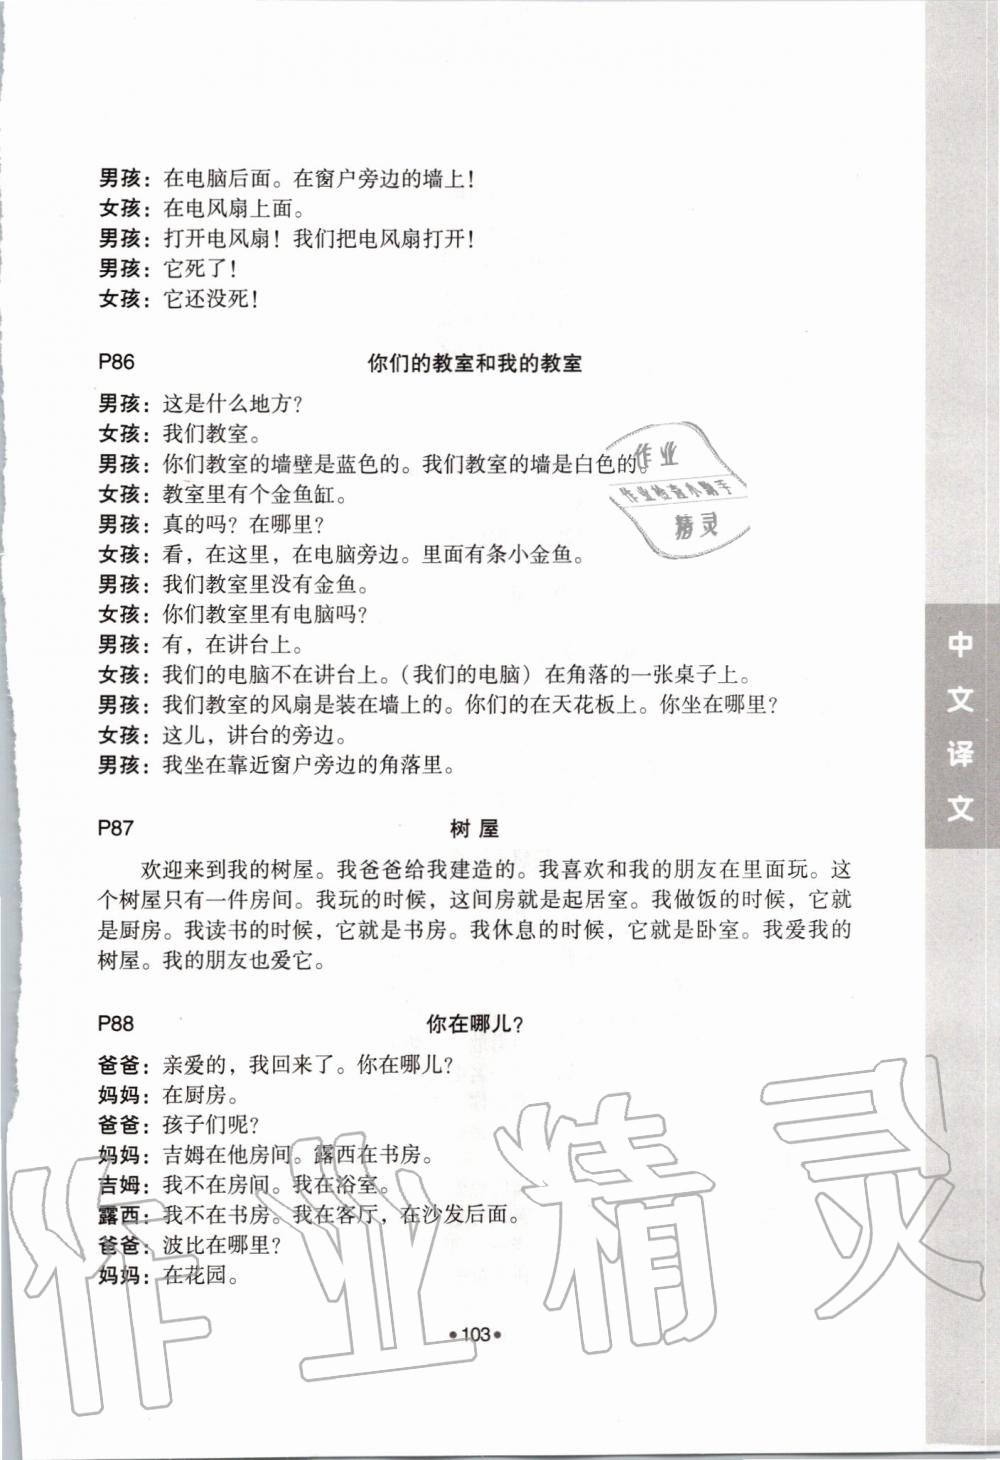 男孩：在电脑后面。在窗户旁边的墙上！
女孩：在电风扇上面。
男孩：打开电风扇！我们把电风扇打开！
男孩：它死了！
女孩：它还没死！
P86 你们的教室和我的教室
男孩：这是什么地方？
女孩：我们教室。
男孩：你们教室的墙壁是蓝色的。我们教室的墙是白色的。
女孩：教室里有个金鱼缸。
男孩：真的吗？在哪里？
女孩：看，在这里，在电脑旁边。里面有条小金鱼。
男孩：我们教室里没有金鱼。
女孩：你们教室里有电脑吗？
男孩：有，在讲台上。
女孩：我们的电脑不在讲台上。（我们的电脑）在角落的一张桌子上。
男孩：我们教室的风扇是装在墙上的。你们的在天花板上。你坐在哪里？
女孩：这儿，讲台的旁边。
男孩：我坐在靠近窗户旁边的角落里。
P87 树屋
欢迎来到我的树屋。我爸爸给我建造的。我喜欢和我的朋友在里面玩。这
个树屋只有一件房间。我玩的时候，这间房就是起居室。我做饭的时候，它就
是厨房。我读书的时候，它就是书房。我休息的时候，它就是卧室。我爱我的
树屋。我的朋友也爱它。
P88 你在哪儿？
爸爸：亲爱的，我回来了。你在哪儿？
妈妈：在厨房。
爸爸：孩子们呢？
妈妈：吉姆在他房间。露西在书房。
吉姆：我不在房间。我在浴室。
露西：我不在书房。我在客厅，在沙发后面。
爸爸：波比在哪里？
妈妈：在花园。
•103•
中文译文
作业
作业检查小助手
精灵
作业精灵